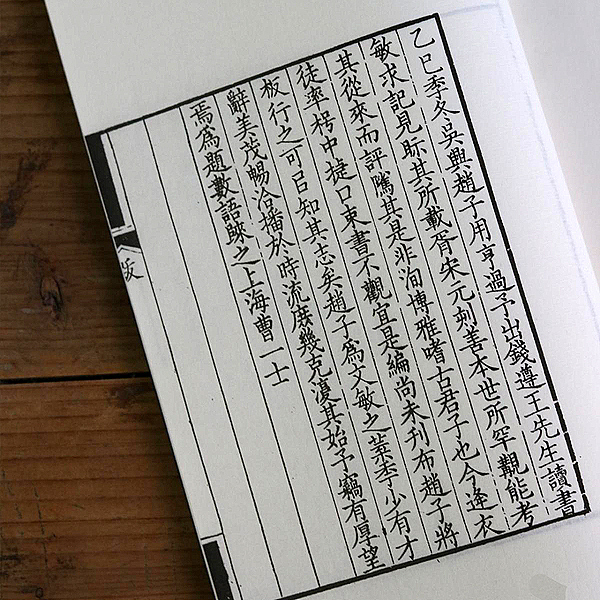 乙巳季冬吳興趙子用亨過予出錢遵王先生讀書
敏求記見眎其所載胥宋元刻善本世所罕覯能考
其從來而評隲其是非洵博雅嗜古君子也今逢衣
徒率枵中捷口束書不觀宜是編尚未刊布趙子將
板行之可㠯知其志矣趙子爲文敏之葉少有才
辭美茂暢洽播於時流庶幾克復其始予竊有厚望
焉爲題數語之上海曹一士
跋